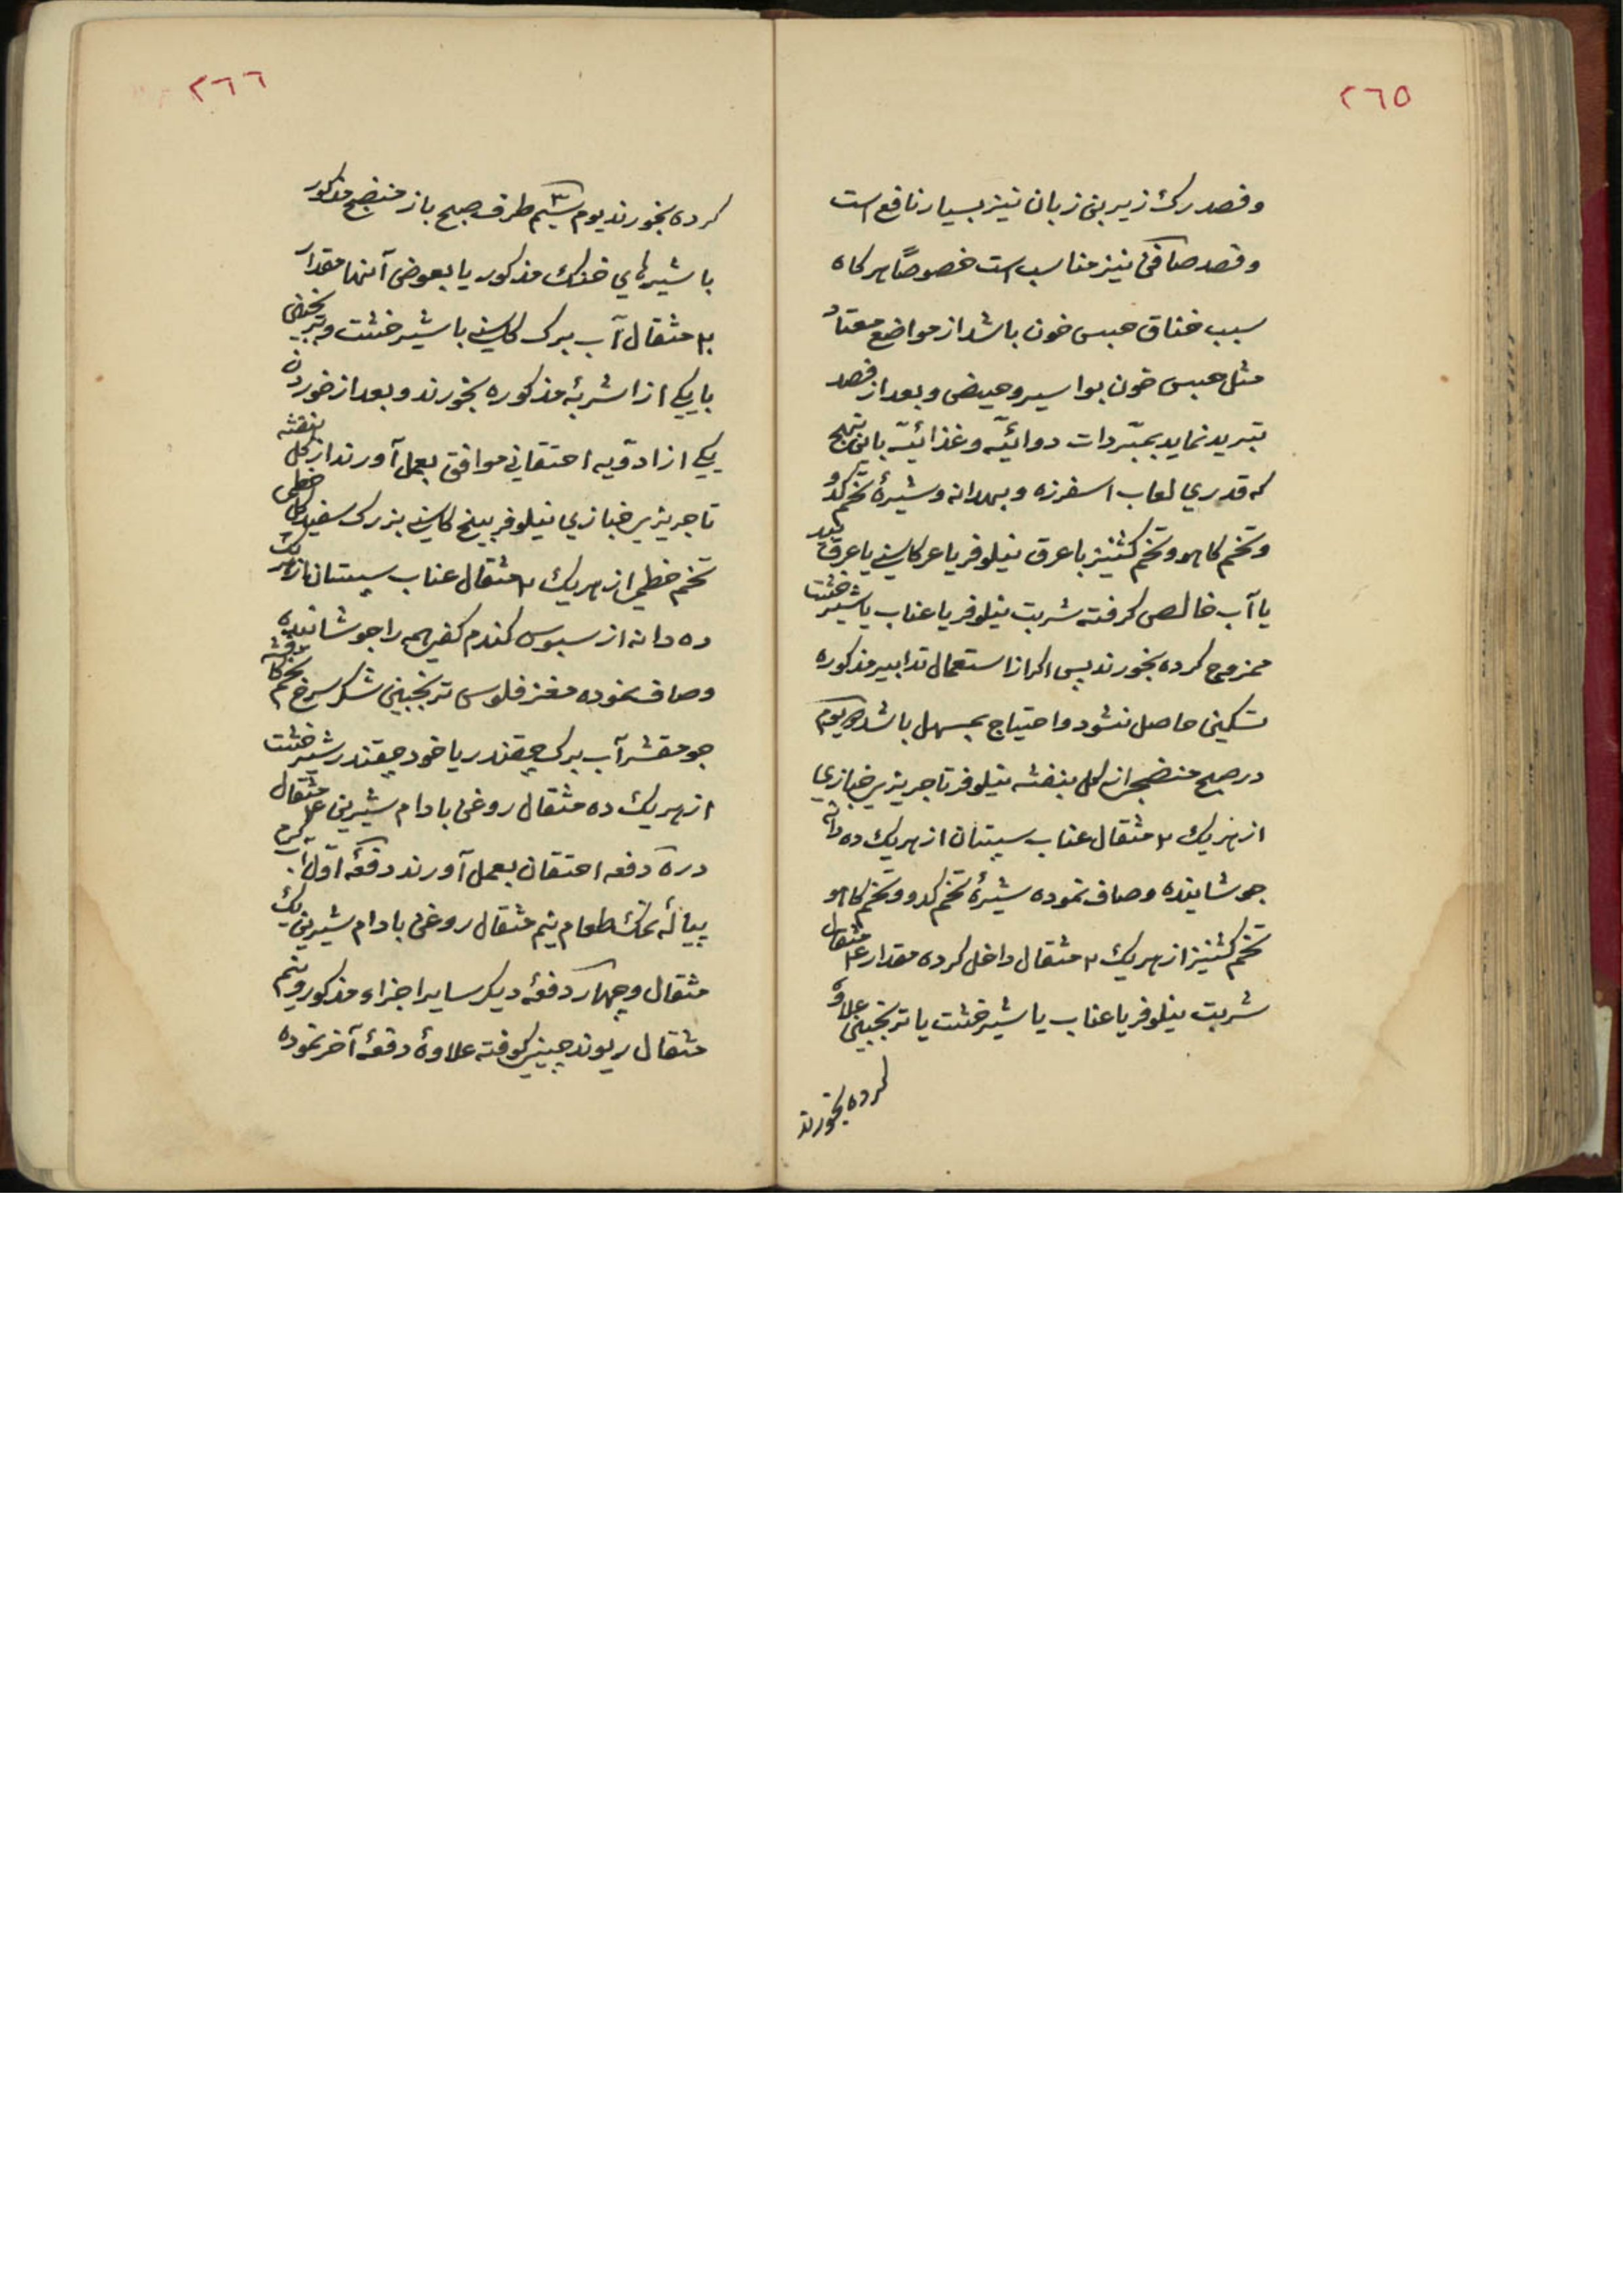 ٢٦٥
وفصد رك زیر بن زبان نیز بسیار نافع است
وفصد صافن نیز مناسب است خصوصاً هركاه
سبب خناق حبس خون باشد از مواضع معتاد
مثل حبس خون بواسیر وحیض وبعد از فصد
تبرید نماید بمبّردات دوائیّه وغذائیّه باین نهج
كه قدري لعاب اسفرزه وبهدانه وشیرۀ تخم كدو
وتخم كاهو وتخم كشنیز با عرق نیلوفر یا عر كاسني یا عرق بید
یا آب خالص كرفته شربت نیلوفر یا عناب یا شیرخشت
ممزوج كرده بخورند پس اكر از استعمال تدابیر مذكوره
تسكین حاصل نشود واحتیاج بمسهل باشد دو یوم
در صبح منضجي از كل بنفشه نیلوفر تاجریزي خبازي
از هریك ٢ مثقال عناب سپستان از هریك ده دانه
جوشانیده وصاف نموده شیرۀ تخم كدو وتخم كاهو
تخم كشنیز از هریك ٢ مثقال داخل كرده مقدار ٤ مثقال
شربت نیلوفر یا عناب یا شیرخشت یا ترنجبین علاوه
كرده بخورند
٢٦٦
كرده بخورند یوم سیّم طرف صبح باز منضج مذكور
با شیرهاي خنك مذكور یا بعوض آنها مقدار
مثقال آب برك كاسني با شیرخشت وترنجبین
با یكي از اشربۀ مذكوره بخورند وبعد از خوردن
یكي از ادویه احتقاني موافق بعمل آورند از كل بنفشه
تاجریزي خبازي نیلوفر بیخ كاسني بزرك سفید كل خطمي
تخم خطمي از هریك ٢ مثقال عناب سپستان از هریك
ده دانه از سبوس كندم كفي همه را جوشانیده
وصاف نموده مغز فلوس ترنجبین شكر سرخ تخم كافشه
جو مقشر آب برك چقندر یا خود چقندر شیرخشت
از هریك ده مثقال روغن بادام شیرین ٤ مثقال
در ٥ دفعه احتقان بعمل آورند دفعۀ اول آب كرم
پیالۀ نمك طعام نیم مثقال روغن بادام شیرین یك
مثقال وچهار دفعۀ دیكر سایر اجزاء مذكور ونیم
مثقال ریوند چیني كوفته علاوۀ دفعۀ آخر نموده